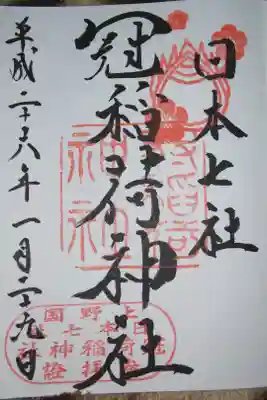 日本七社
冠稲荷神社
平成二十六年一月二十九日
上野国
日本七社
冠稲荷神社
参拝證